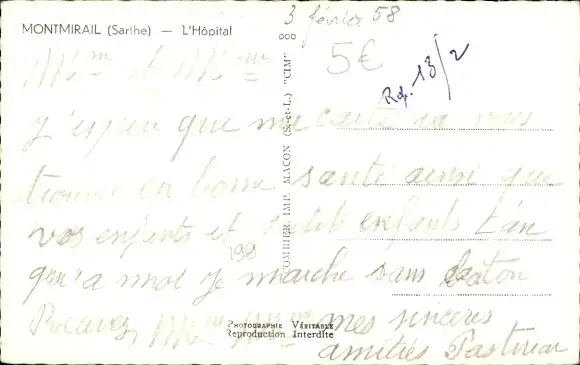 MONTMIRAIL (Sarthe) — L'Hôpital
3 février 58
5€
Rep. 13/2
COMBIER IMP. MACON (S.-et-L.) "CIM"
J'espere que ma carte va vous
trouver en bonne santé ainsi que
vos enfants et petits enfants
198
qu'a moi je marche sans baton
Recevez mes sinceres
amitiés
PHOTOGRAPHIE VÉRITABLE
Reproduction Interdite